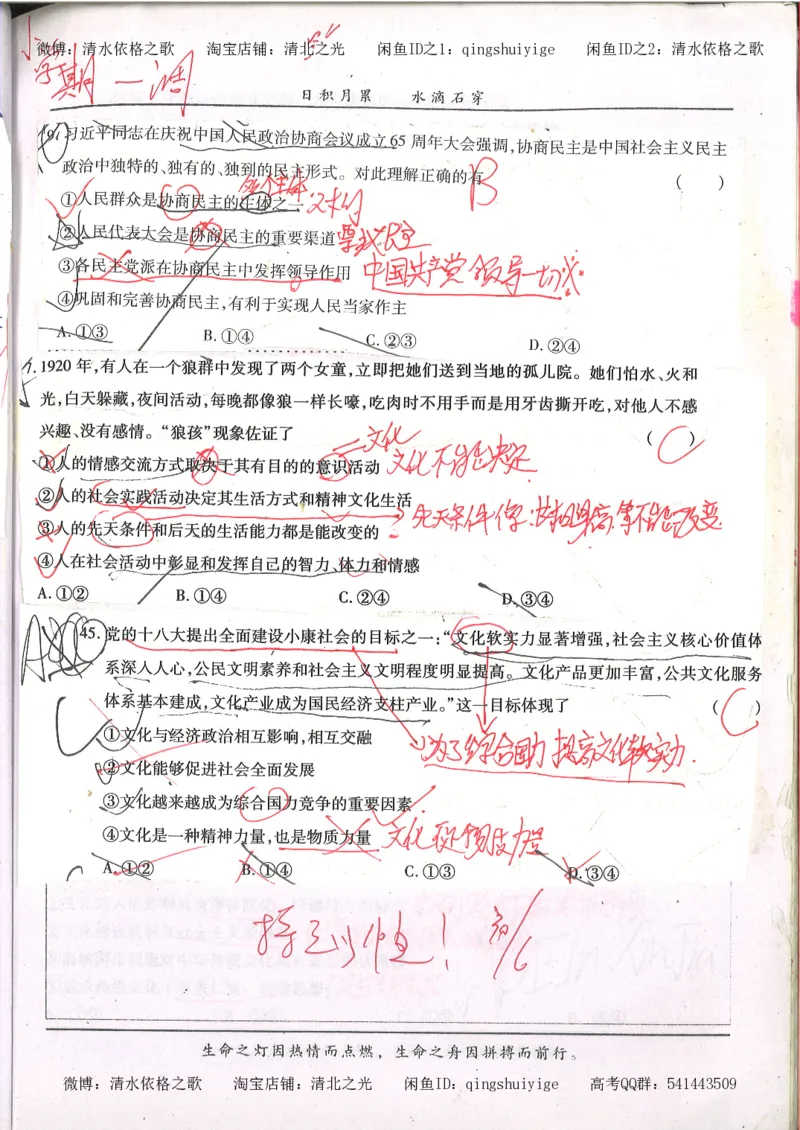 微博：清水依格之歌 淘宝店铺：清北之光 闲鱼ID之1：qingshuiyige 闲鱼ID之2：清水依格之歌
学期一调
日积月累 水滴石穿
习近平同志在庆祝中国人民政治协商会议成立65周年大会强调，协商民主是中国社会主义民主
政治中独特的、独有的、独到的民主形式。对此理解正确的有 （ ）
B
①人民群众是协商民主的主体之一
②人民代表大会是协商民主的重要渠道
③各民主党派在协商民主中发挥领导作用 中国共产党领导一切
④巩固和完善协商民主，有利于实现人民当家作主
A. ①③ B. ①④ C. ②③ D. ②④
1920年，有人在一个狼群中发现了两个女童，立即把她们送到当地的孤儿院。她们怕水、火和
光，白天躲藏，夜间活动，每晚都像狼一样长嚎，吃肉时不用手而是用牙齿撕开吃，对他人不感
兴趣、没有感情。“狼孩”现象佐证了 （ C ）
文化
①人的情感交流方式取决于其有目的的意识活动 文化不能决定
②人的社会实践活动决定其生活方式和精神文化生活
③人的先天条件和后天的生活能力都是能改变的 先天条件 不能改变
④人在社会活动中彰显和发挥自己的智力、体力和情感
A. ①② B. ①④ C. ②④ D. ③④
45. 党的十八大提出全面建设小康社会的目标之一：“文化软实力显著增强，社会主义核心价值体
系深入人心，公民文明素养和社会主义文明程度明显提高。文化产品更加丰富，公共文化服务
体系基本建成，文化产业成为国民经济支柱产业。”这一目标体现了 （ C ）
①文化与经济政治相互影响，相互交融
为了综合国力 提高文化软实力.
②文化能够促进社会全面发展
③文化越来越成为综合国力竞争的重要因素
④文化是一种精神力量，也是物质力量
A. ①② B. ①④ C. ①③ D. ③④
生命之灯因热情而点燃，生命之舟因拼搏而前行。
微博：清水依格之歌 淘宝店铺：清北之光 闲鱼ID：qingshuiyige 高考QQ群：541443509